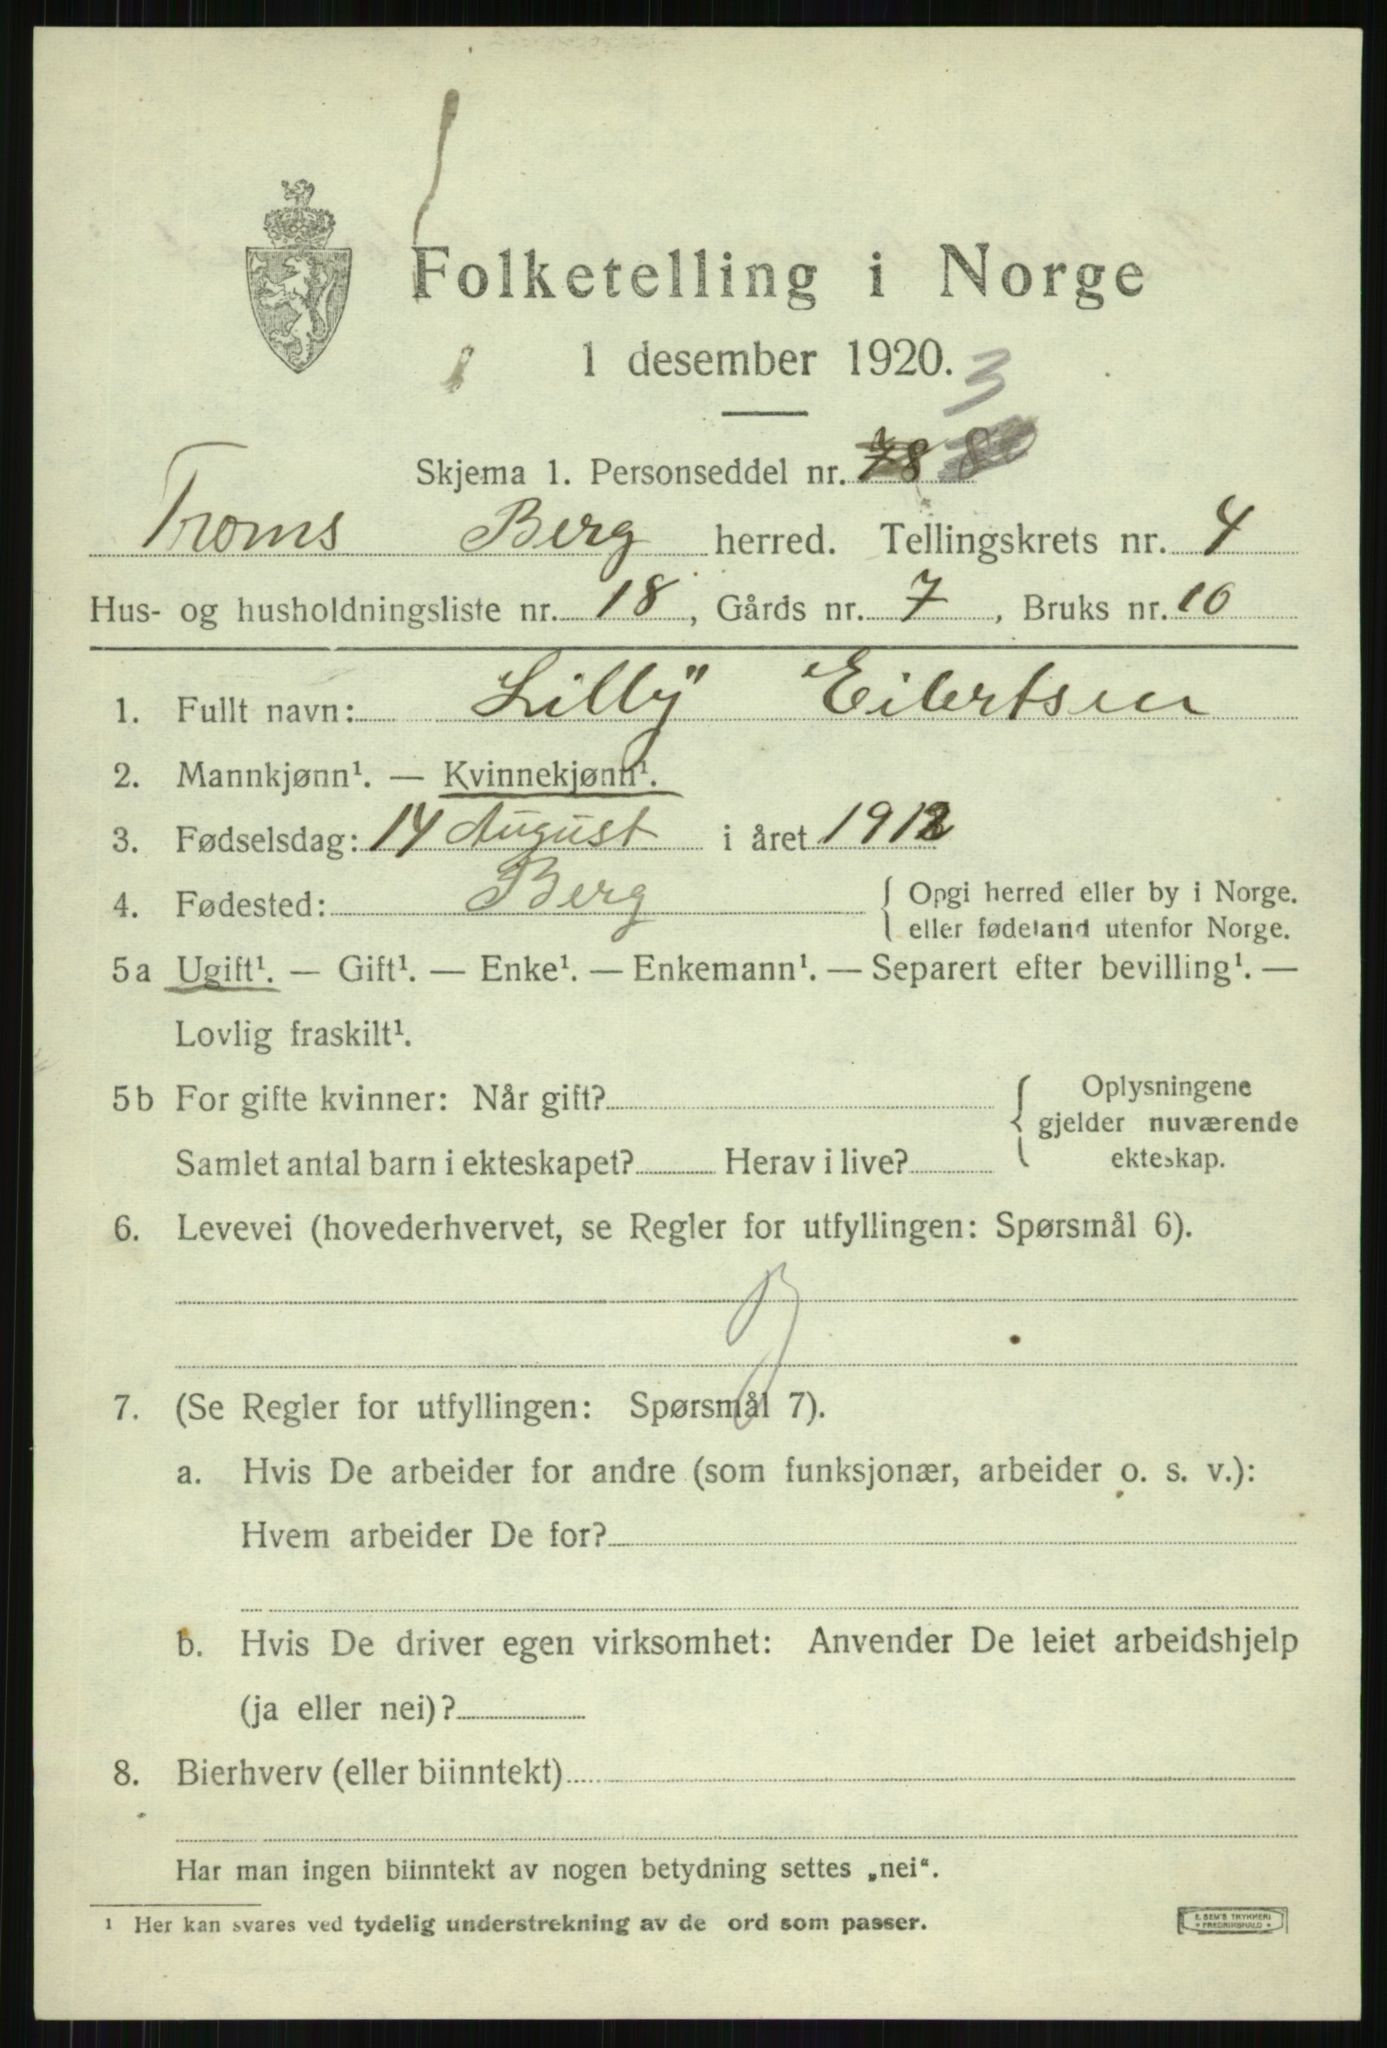 Folketelling i Norge
1 desember 1920.
3
Skjema 1. Personseddel nr. 8
Troms Berg herred. Tellingskrets nr. 4
Hus- og husholdningsliste nr. 18, Gårds nr. 7, Bruks nr. 10
1. Fullt navn: Lilly Eilertsen
2. Mannkjønn¹. — Kvinnekjønn¹.
3. Fødselsdag: 14 August i året 1912
4. Fødested: Berg { Opgi herred eller by i Norge.
eller fødeland utenfor Norge.
5a Ugift¹. — Gift¹. — Enke¹. — Enkemann¹. — Separert efter bevilling¹. —
Lovlig fraskilt¹.
5b For gifte kvinner: Når gift? { Oplysningene
gjelder nuværende
Samlet antal barn i ekteskapet? Herav i live? ekteskap.
6. Levevei (hovederhvervet, se Regler for utfyllingen: Spørsmål 6).
7. (Se Regler for utfyllingen: Spørsmål 7).
a. Hvis De arbeider for andre (som funksjonær, arbeider o. s. v.):
Hvem arbeider De for?
b. Hvis De driver egen virksomhet: Anvender De leiet arbeidshjelp
(ja eller nei)?
8. Bierhverv (eller biinntekt)
Har man ingen biinntekt av nogen betydning settes „nei“.
¹ Her kan svares ved tydelig understrekning av de ord som passer.
E. SEM'S TRYKKERI
* FREDRIKSHALD *